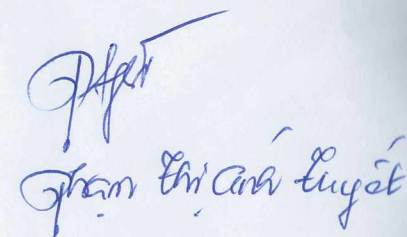 Phạm Thị Ánh Tuyết